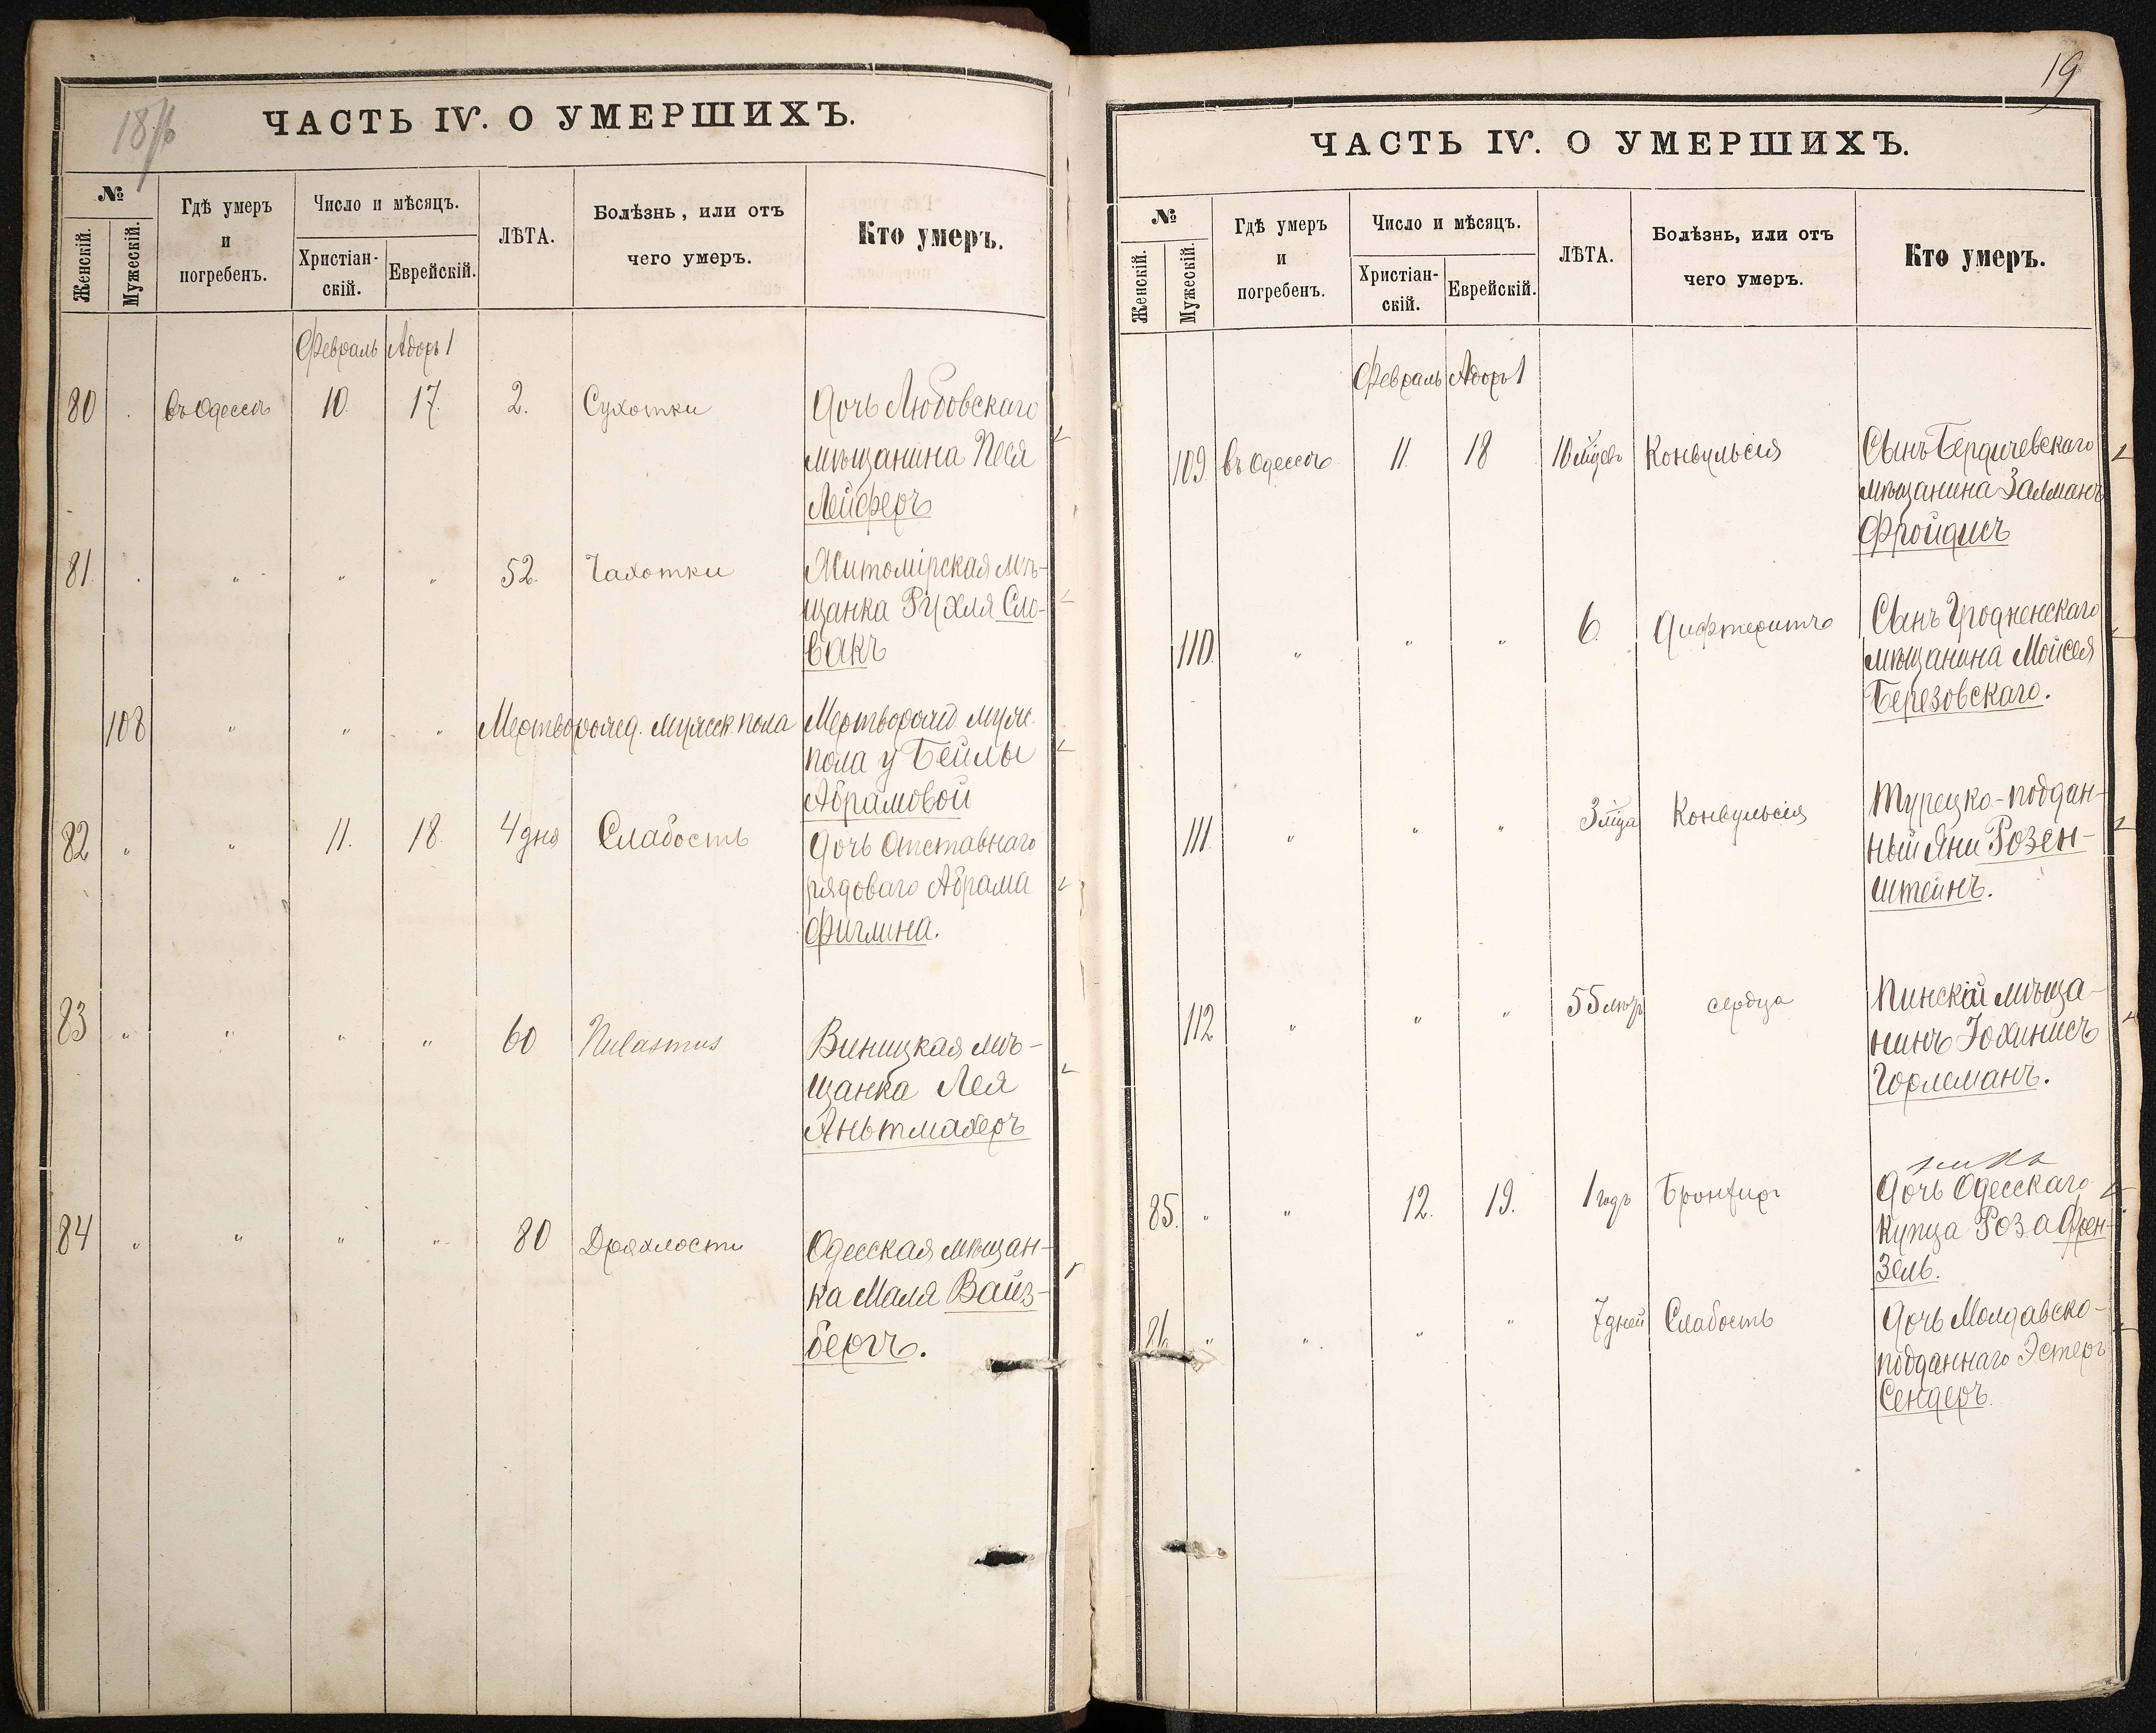 ЧАСТЬ IV. О УМЕРШИХЪ.
№
Женскій.
Мужескій.
Гдѣ умеръ
и
погребенъ.
Число и мѣсяцъ.
Христіан-
скій.
Еврейскій.
ЛѢТА.
Болѣзнь, или отъ
чего умеръ.
Кто умеръ.
Февраль Адоръ 1
80 въ Одессѣ 10. 17. 2. Сухотки Дочь Любовскаго
мѣщанина Песя
Лейферъ
81. " " " 52. Чахотки Житомірская мѣ-
щанка Рухля Сло-
вакъ
108 " " " Мертворожд. мужеск. пола Мертворожд муж.
пола у Бейлы
Абрамовой
82 " " 11. 18. 4 дня Слабость Дочь Отставнаго
рядоваго Абрама
Фиглина.
83 " " " " 60 Виницкая мѣ-
щанка Лея
Аньтмахеръ
84 " " " " 80 Дряхлости Одесская мѣщан-
ка Маля Вайз-
бергъ.
19
ЧАСТЬ IV. О УМЕРШИХЪ.
№
Женскій.
Мужескій.
Гдѣ умеръ
и
погребенъ.
Число и мѣсяцъ.
Христіан-
скій.
Еврейскій.
ЛѢТА.
Болѣзнь, или отъ
чего умеръ.
Кто умеръ.
Февраль Адоръ 1
109. въ Одессѣ 11. 18 10 мѣцевъ Конвульсія Сынъ Бердичевскаго
мѣщанина Залманъ
Фройдисъ
110. " " " 6. Дифтеритъ Сынъ Гродненскаго
мѣщанина Мойсея
Березовскаго.
111. " " " 3 мѣца Конвульсія Турецко-поддан-
ный Яни Розен-
штейнъ.
112 " " " 55 лѣтъ сердца Пинскій мѣща-
нинъ Іохинисъ
Горлеманъ.
85. " " 12. 19. 1 годъ Дочь Одесскаго
купца Роза Френ-
зель.
86. " " " " 7 дней Слабость Дочь Молдавско-
подданнаго Эстеръ
Сендеръ.